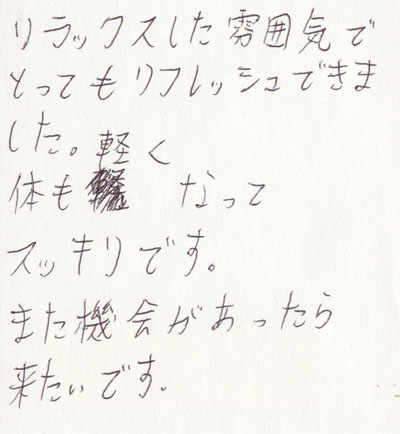 リラックスした雰囲気で
とってもリフレッシュできま
した。
体も軽くなって
スッキリです。
また機会があったら
来たいです.